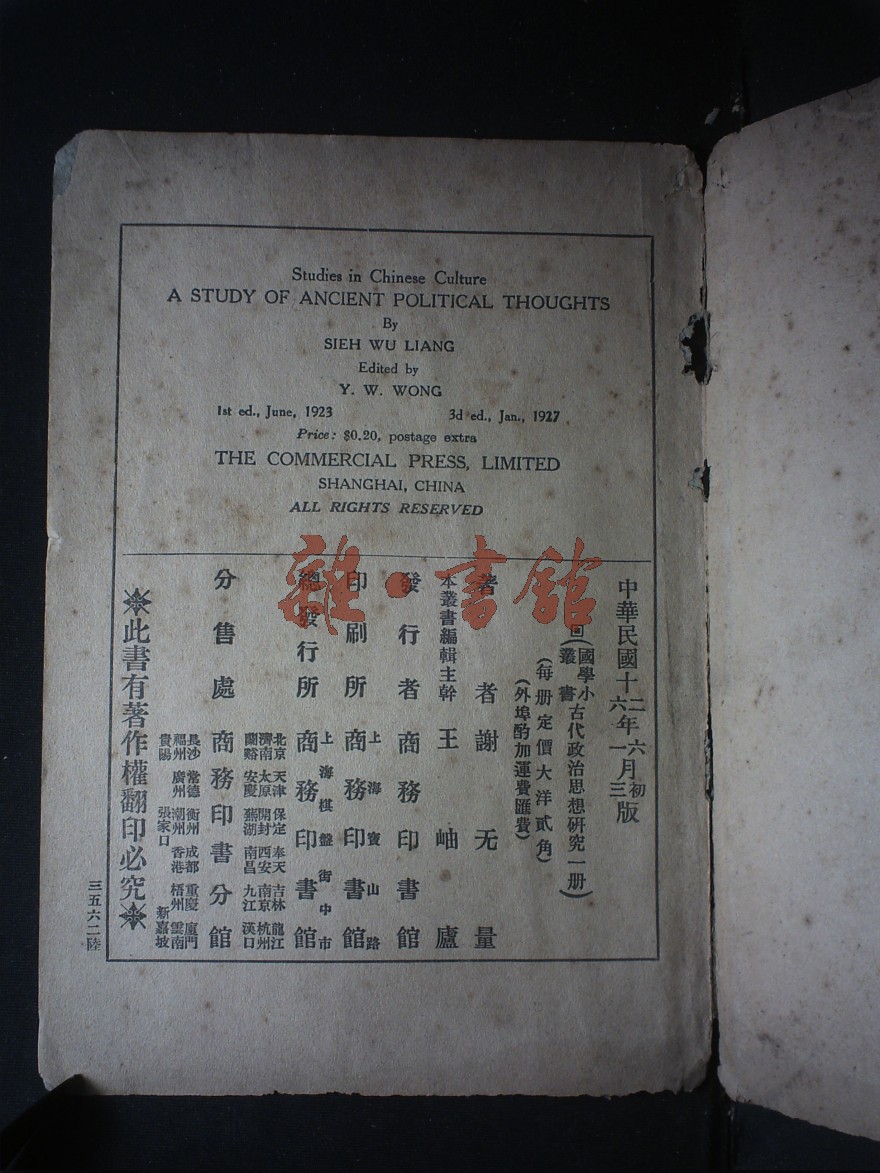 Studies in Chinese Culture
A STUDY OF ANCIENT POLITICAL THOUGHTS
By
SIEH WU LIANG
Edited by
Y. W. WONG
1st ed., June, 1923 3d ed., Jan., 1927
Price: $0.20, postage extra
THE COMMERCIAL PRESS, LIMITED
SHANGHAI, CHINA
ALL RIGHTS RESERVED
雜·書館
中華民國十二年六月初版
六年一月三
國學小叢書
古代政治思想研究一册)
(每册定價大洋貳角)
(外埠酌加運費匯費)
著者謝无量
本叢書編輯主幹王岫廬
發行者商務印書館
印刷所上海寶山路商務印書館
總發行所上海棋盤街中市商務印書館
分售處商務印書分館
北京 天津 保定 奉天 吉林 龍江
濟南 太原 開封 西安 南京 杭州
蘭谿 安慶 蕪湖 南昌 九江 漢口
長沙 常德 衡州 成都 重慶 廈門
福州 廣州 潮州 香港 梧州 雲南
貴陽 張家口 新嘉坡
※此書有著作權翻印必究※
三五六二陸